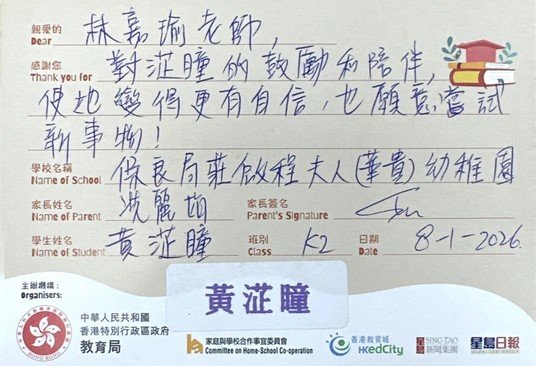 親愛的 林嘉瑜老師，
Dear
感謝您 對淽瞳的鼓勵和陪伴，
Thank you for
使她變得更有自信，也願意嘗試
新事物！
學校名稱 保良局莊啟程夫人(華貴)幼稚園
Name of School
家長姓名 冼麗 家長簽名
Name of Parent Parent's Signature
學生姓名 黃淽瞳 班別 K2 日期 8-1-2026
Name of Student Class Date
主辦機構：
Organisers:
黃淽瞳
中華人民共和國
香港特別行政區政府
教育局
HONG KONG
家庭與學校合作事宜委員會
Committee on Home-School Co-operation
香港教育城
HKedCity
SING TAO
新聞集團
星島日報